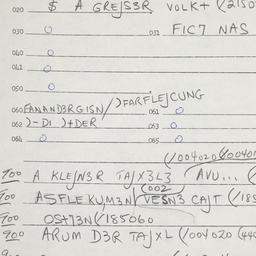 020 $ A GREJSSR VOLK+ (2150
030 O 031 FIC7 NAS
040 O
041 O
050 O
060 FANAND3RGISN/)FARFLEJCUNG 061 O
062 )-DI )+DER 063 O
064 O 065 O
(/004020(60401
700 A KLEJN3R TAJX3L3 (AVU...
700 ASFLEKUM3N (002 VESN3 CAJT (/185
700 OST73N(/185060
900 ARUM D3R TAJXL (/004020 (44